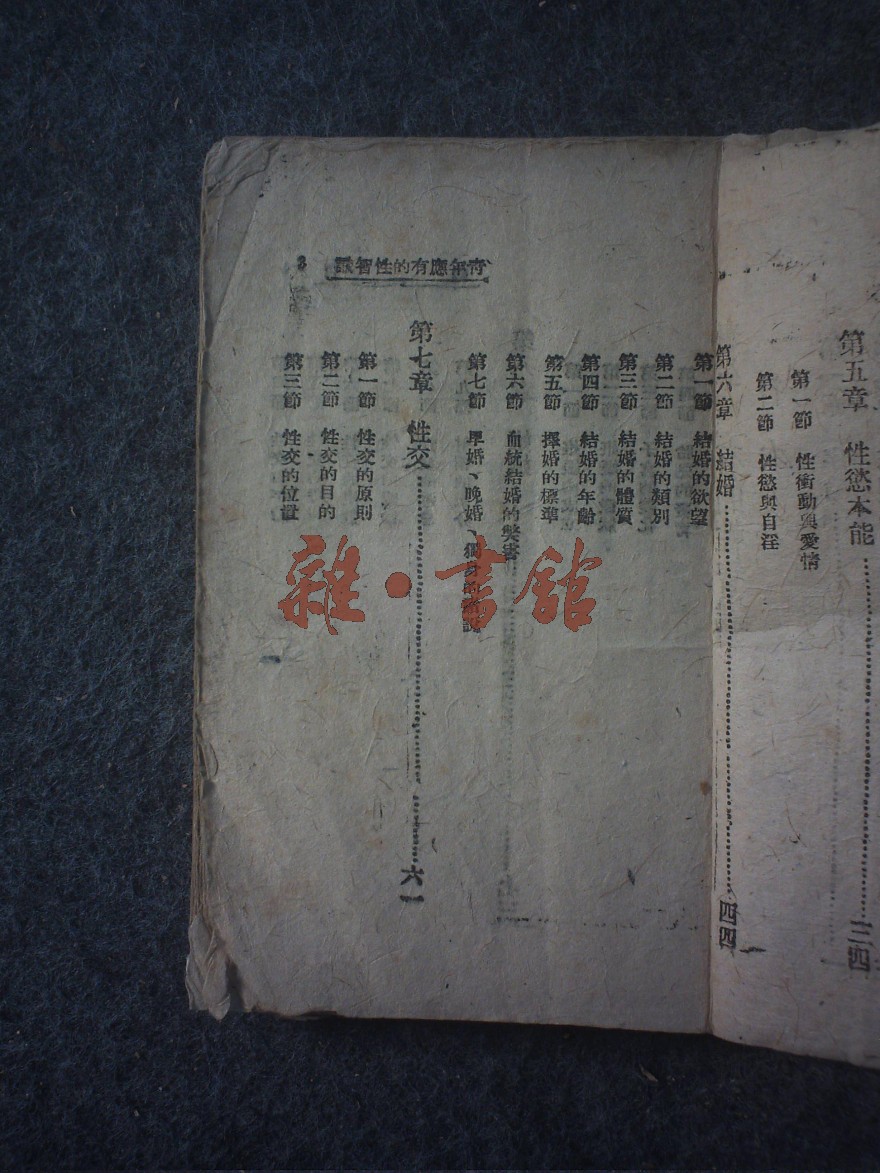 第五章 性慾本能……三四
第一節 性衝動與愛情
第二節 性慾與自淫
第六章 結婚……四四
第一節 結婚的欲望
第二節 結婚的類別
第三節 結婚的體質
第四節 結婚的年齡
第五節 擇婚的標準
第六節 血統結婚的弊害
第七節 早婚、晚婚、獨身的
第七章 性交……六一
第一節 性交的原則
第二節 性交的目的
第三節 性交的位置
青年應有的性智識 3
雜·書館